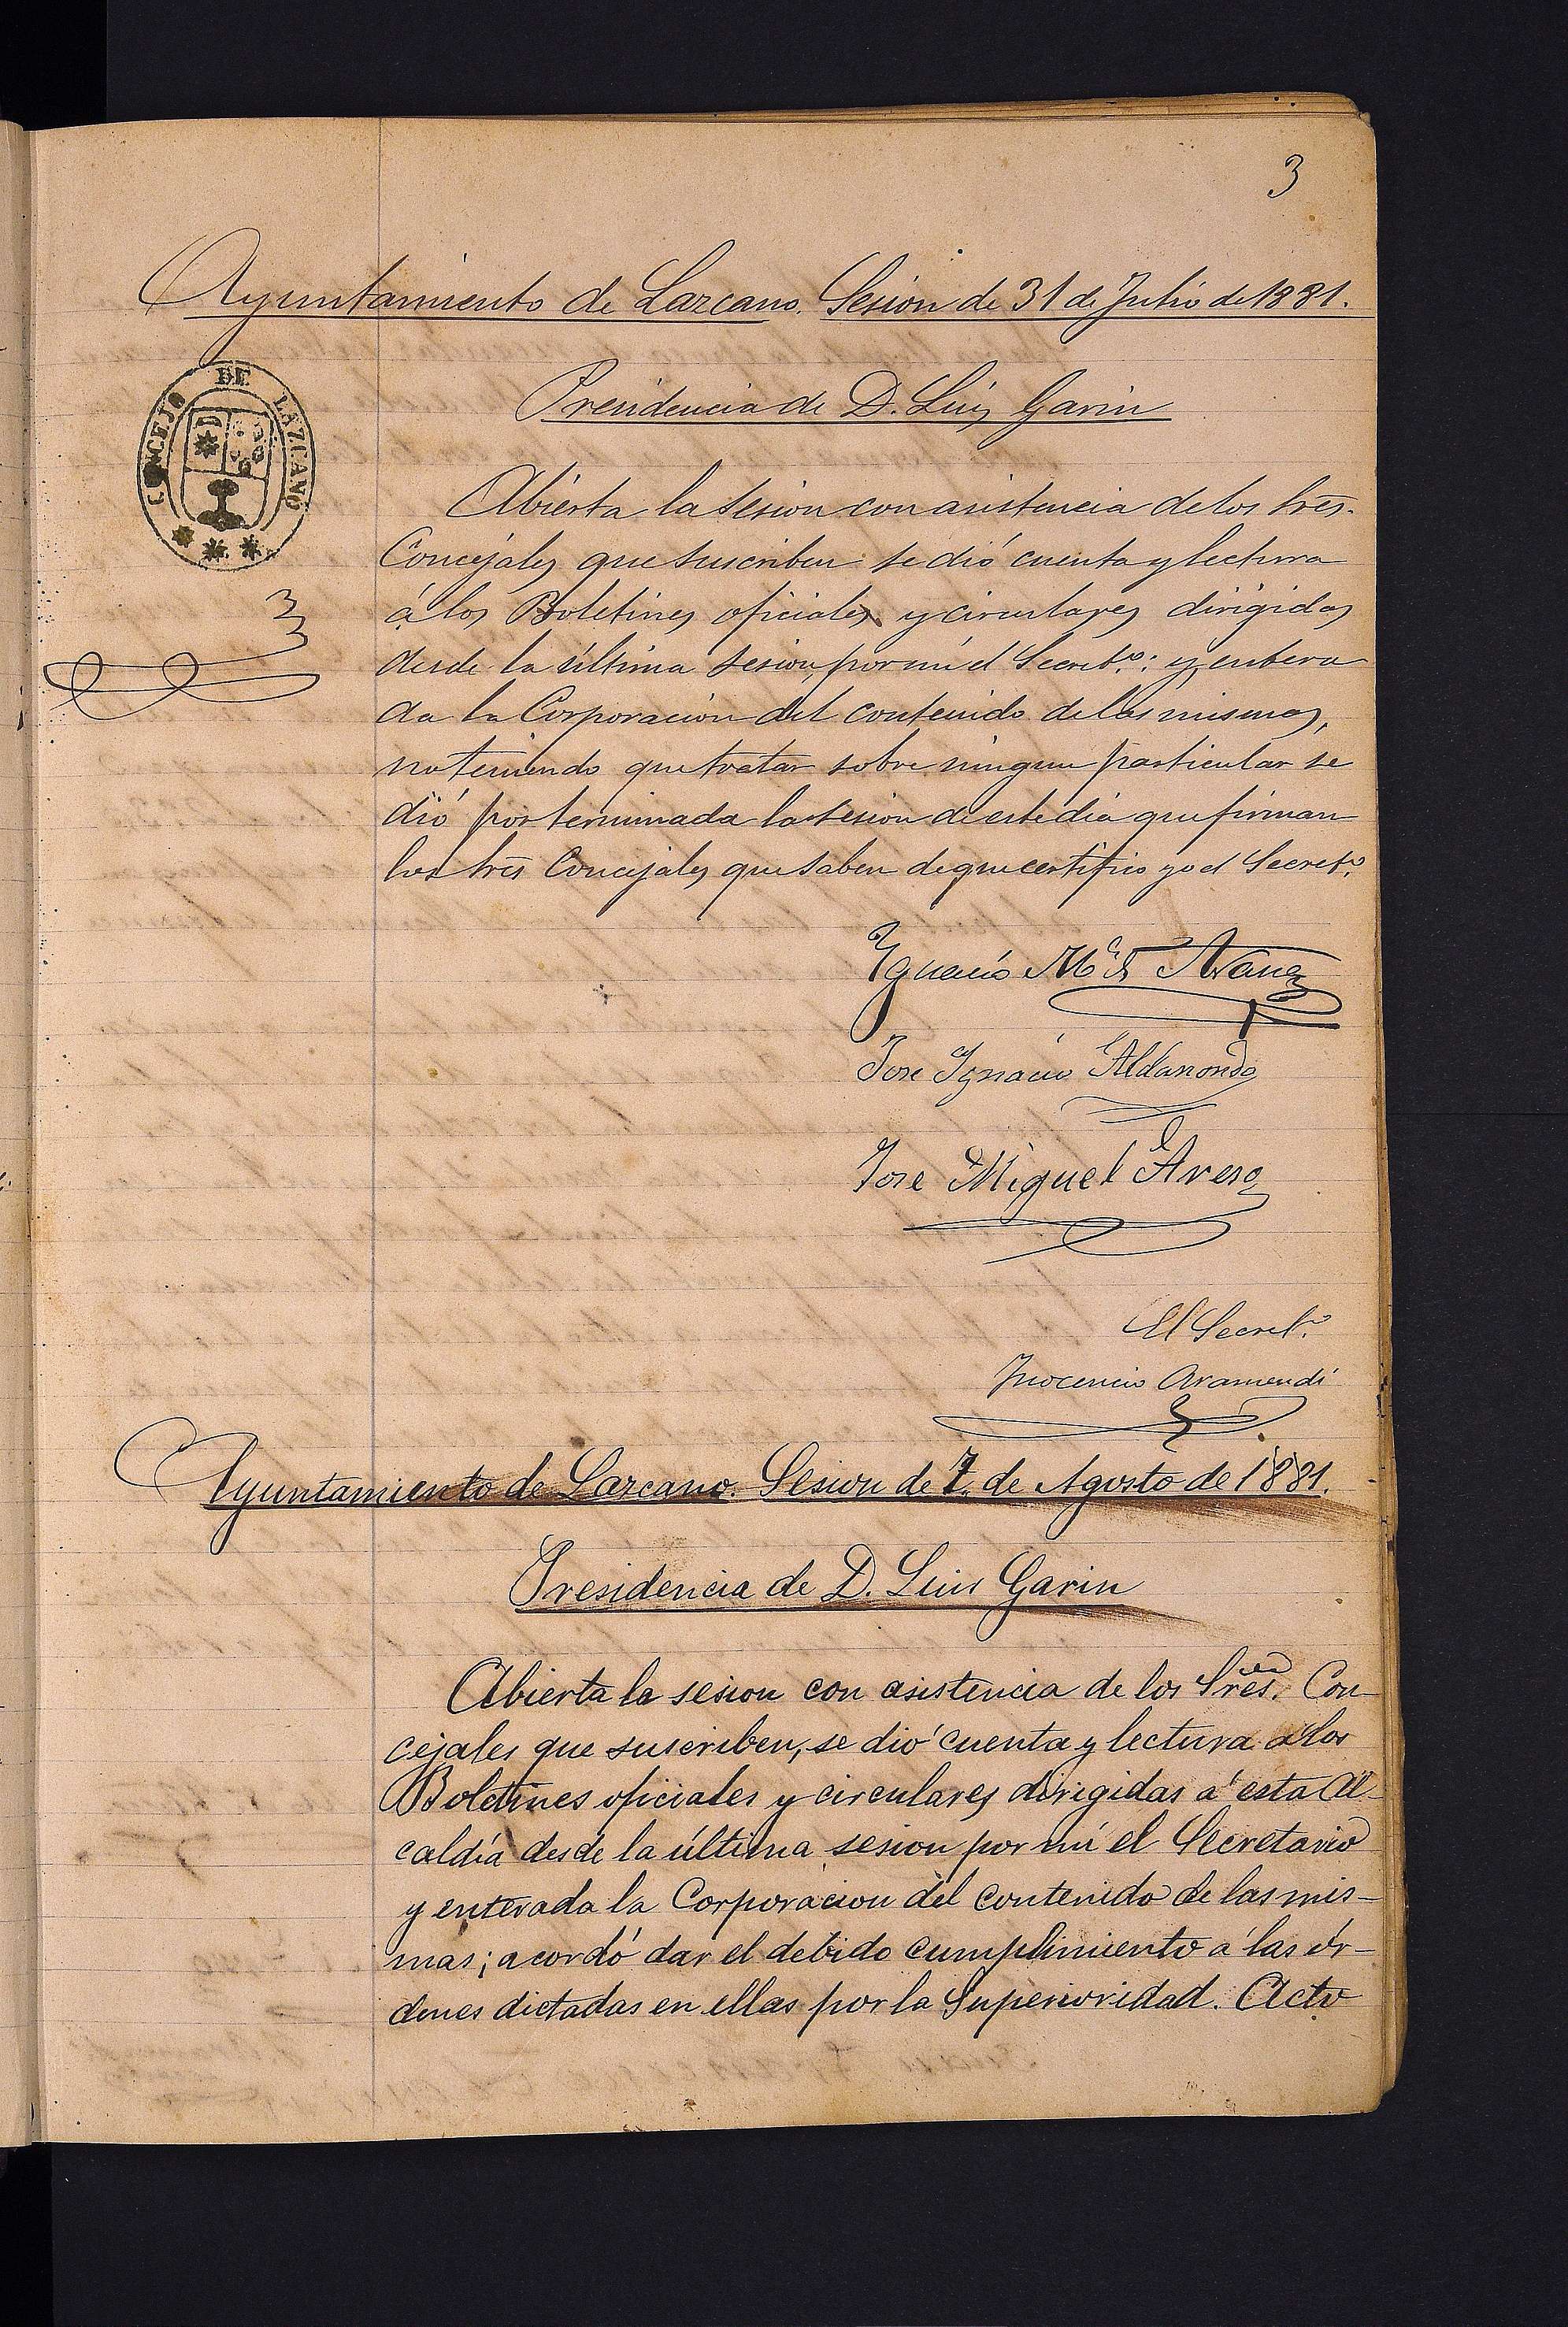 3
Ayuntamiento de Lazcano. Sesion de 31 de Julio de 1881.
CONCEJO DE LAZCANO
Presidencia de D. Luis Garin
Abierta la sesion con asistencia de los Sres.
Concejales que suscriben se dió cuenta y lectura
á los Boletines oficiales y circulares dirigidas
desde la última sesion, por mi el Secret.º: y entera
da la Corporacion del contenido de las mismas,
no teniendo que tratar sobre ningun particular se
dió por terminada la sesion de este dia que firman
los Sres Concejales que saben de que certifico yo el Secret.º
Ygnacio M.ª de
Jose Ygnacio Aldanondo
Jose Miguel Areso
El Secret.º
Ynocencio Aramendi
Ayuntamiento de Lazcano. Sesion de 7 de Agosto de 1881.
Presidencia de D. Luis Garin
Abierta la sesion con asistencia de los Sres. Con-
cejales que suscriben, se dió cuenta y lectura a los
Boletines oficiales y circulares dirigidas á esta Al-
caldía desde la última sesion por mí el Secretario
y enterada la Corporacion del contenido de las mis-
mas; acordó dar el debido cumplimiento á las ór-
denes dictadas en ellas por la Superioridad. Acto